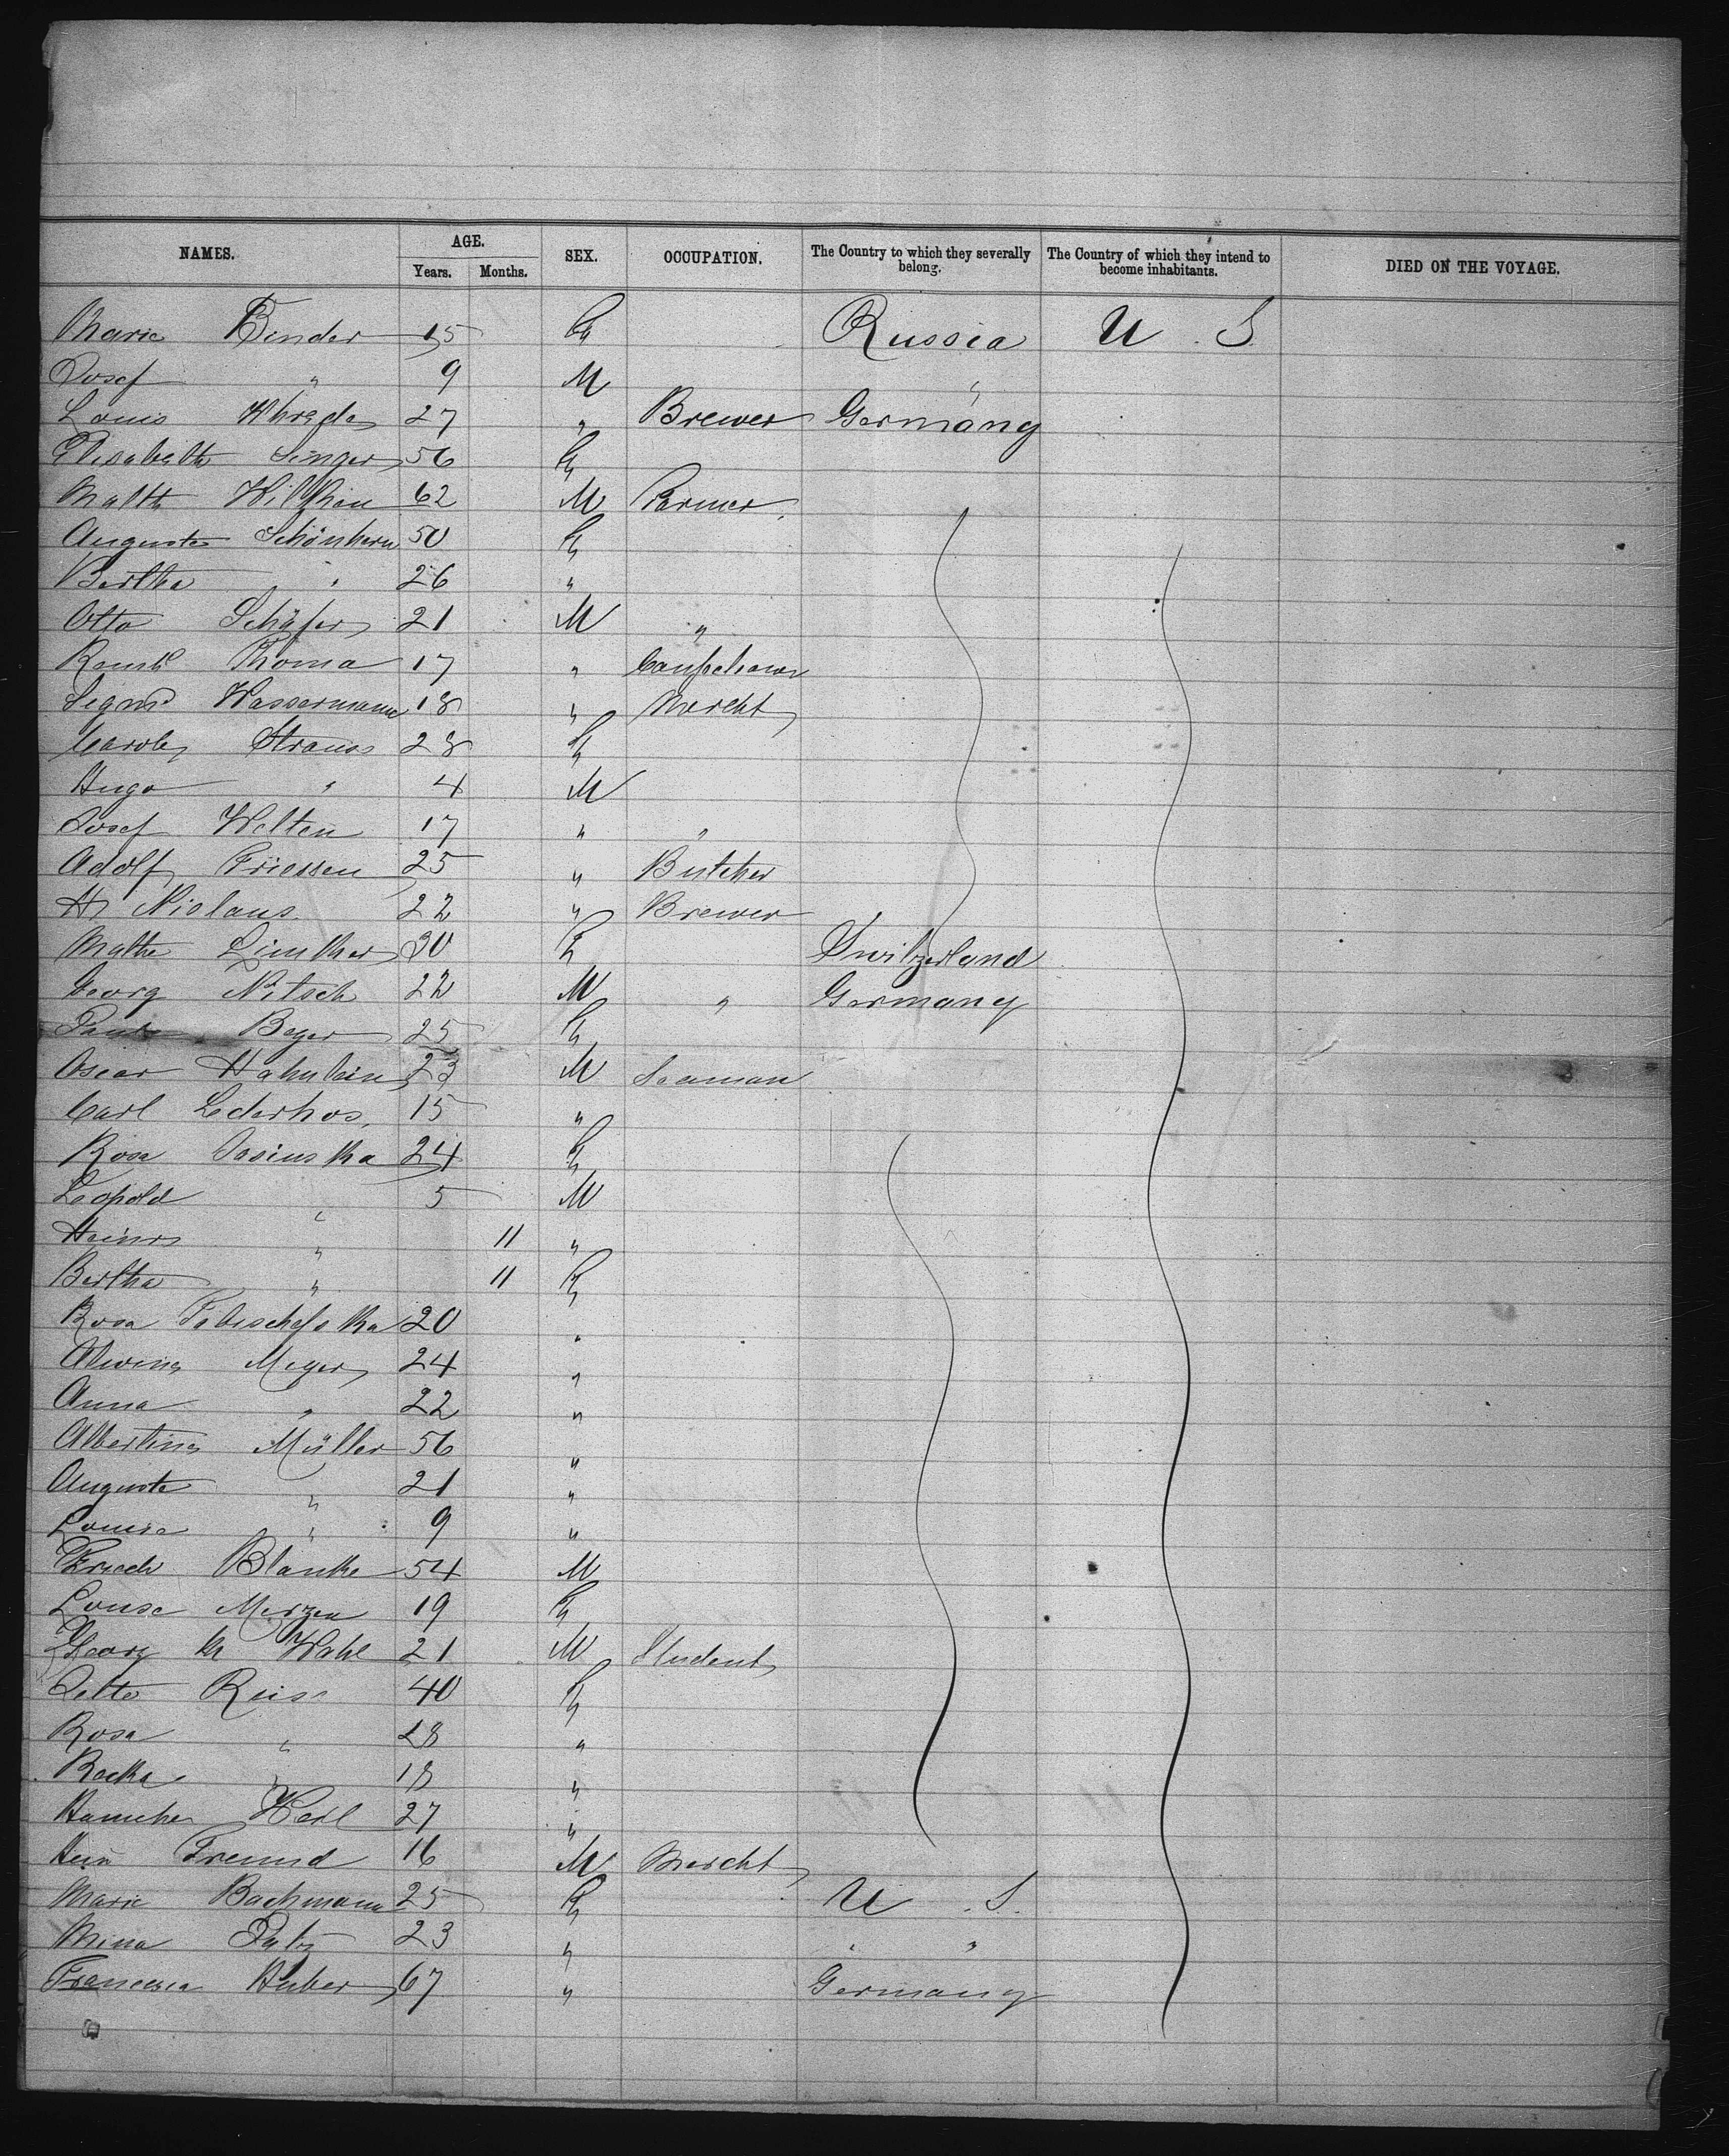 NAMES. AGE. SEX. OCCUPATION. The Country to which they severally belong. The Country of which they intend to become inhabitants. DIED ON THE VOYAGE.
Years. Months.
Marie Binder 15 Russia U. S.
Josef " 9 M "
Louis 27 " Brewer Germany
Elisabeth Singer 56
62 M Farmer
Auguste Schönherr 50
Bertha " 26 "
Otto Schäfer 21 M "
Thoma 17 "
Wassermann 18 " Mercht
Strauss 28
Hugo " 4 M
Josef Welten 17 " "
Adolf Friessen 25 " Butcher
H Niolaus 22 " Brewer
30 Switzerland
Georg Nitsch 22 M " Germany
Beyer 25
Oscar Hahnlein 23 M Seaman
Carl Lederhos, 15 "
Rosa Jasinska 24
Leopold " 5 M
" 11 "
Bertha " 11
Rosa 20 "
Alwine Meyer 24 "
Anna " 22 "
Albertine Müller 56 "
Auguste " 21 "
Louise " 9 "
Blanke 54 M
Louise Merzen 19
Georg Wahl 21 M Student
Reise 40
Rosa " 28 "
" 18 "
27 "
Freund 16 M Mercht
Marie Bachmann 25 U. S.
Mina 23 " " "
Huber 67 " Germany